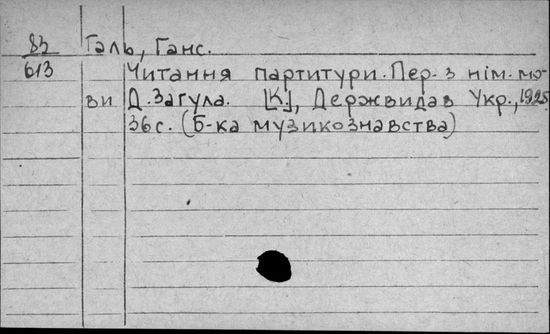 83 Галь, Ганс.
613 Читання партитури. Пер. з нім. мо-
ви Д. Загула. [К.], Держвидав Укр., 1925.
36 с. (Б-ка музикознавства)